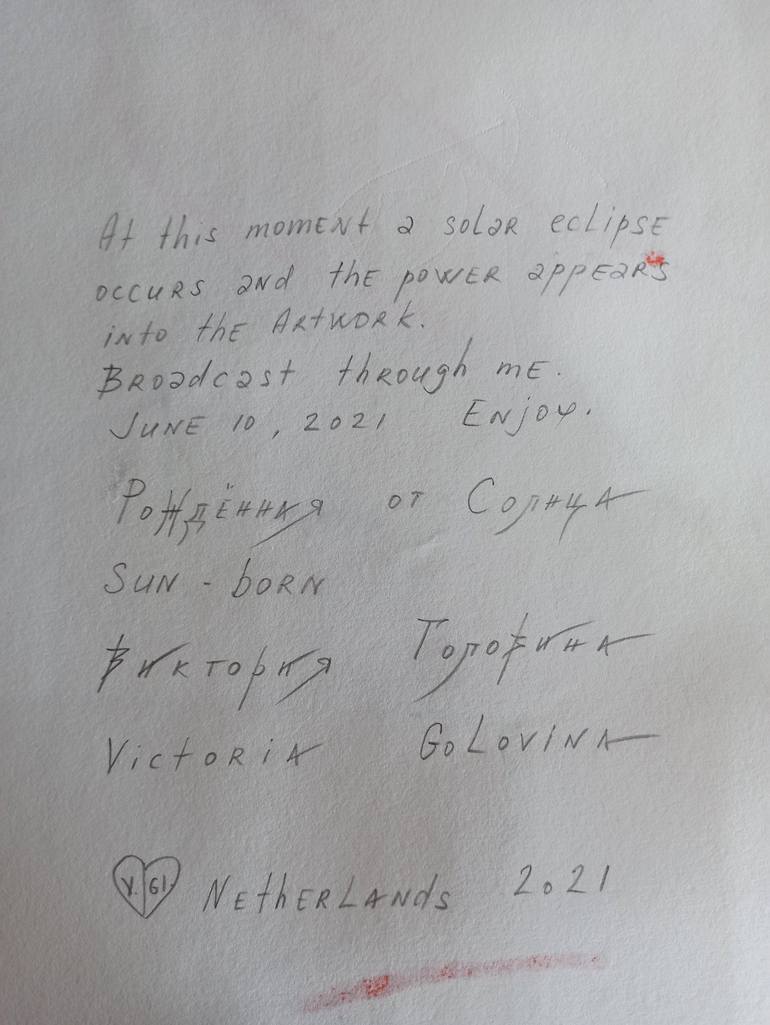 At this moment a solar eclipse
occurs and the power appears
into the Artwork.
Broadcast through me.
June 10, 2021 Enjoy.
Рождённая от Солнца
Sun - born
Виктория Головина
Victoria Golovina
V. G. Netherlands 2021